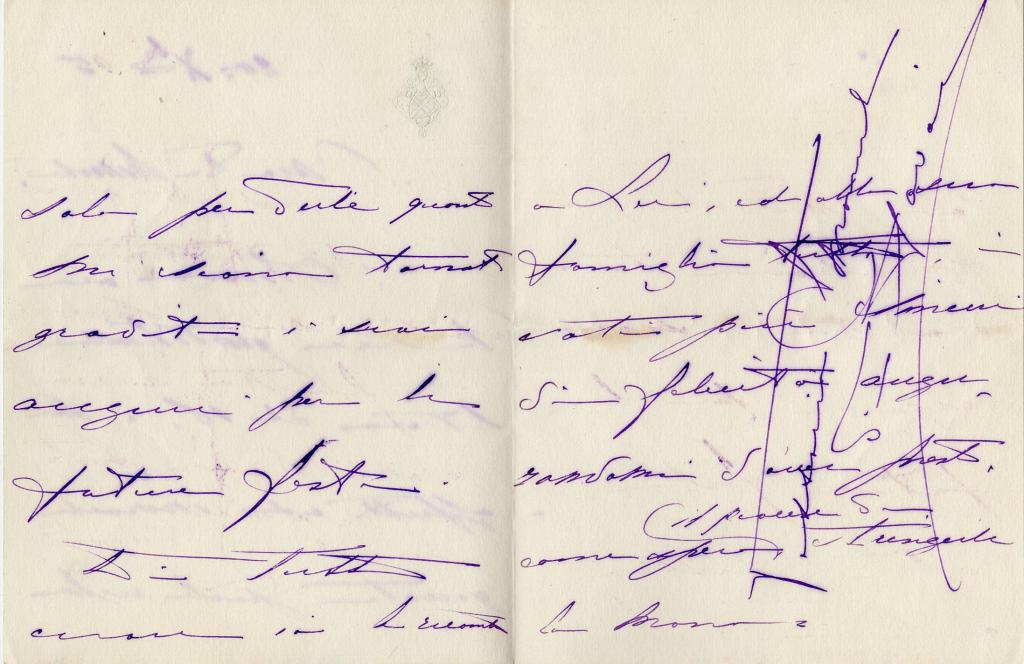 solo per dirle quanto
mi siano tornati
graditi i suoi
auguri per le
future feste.
Di tutto
cuore io le ricambio
a Lei, ed alla sua
famiglia tutta i
voti più sinceri
di felicità, augu-
randomi d'aver presto,
come spero, il piacere di stringerle
la mano =